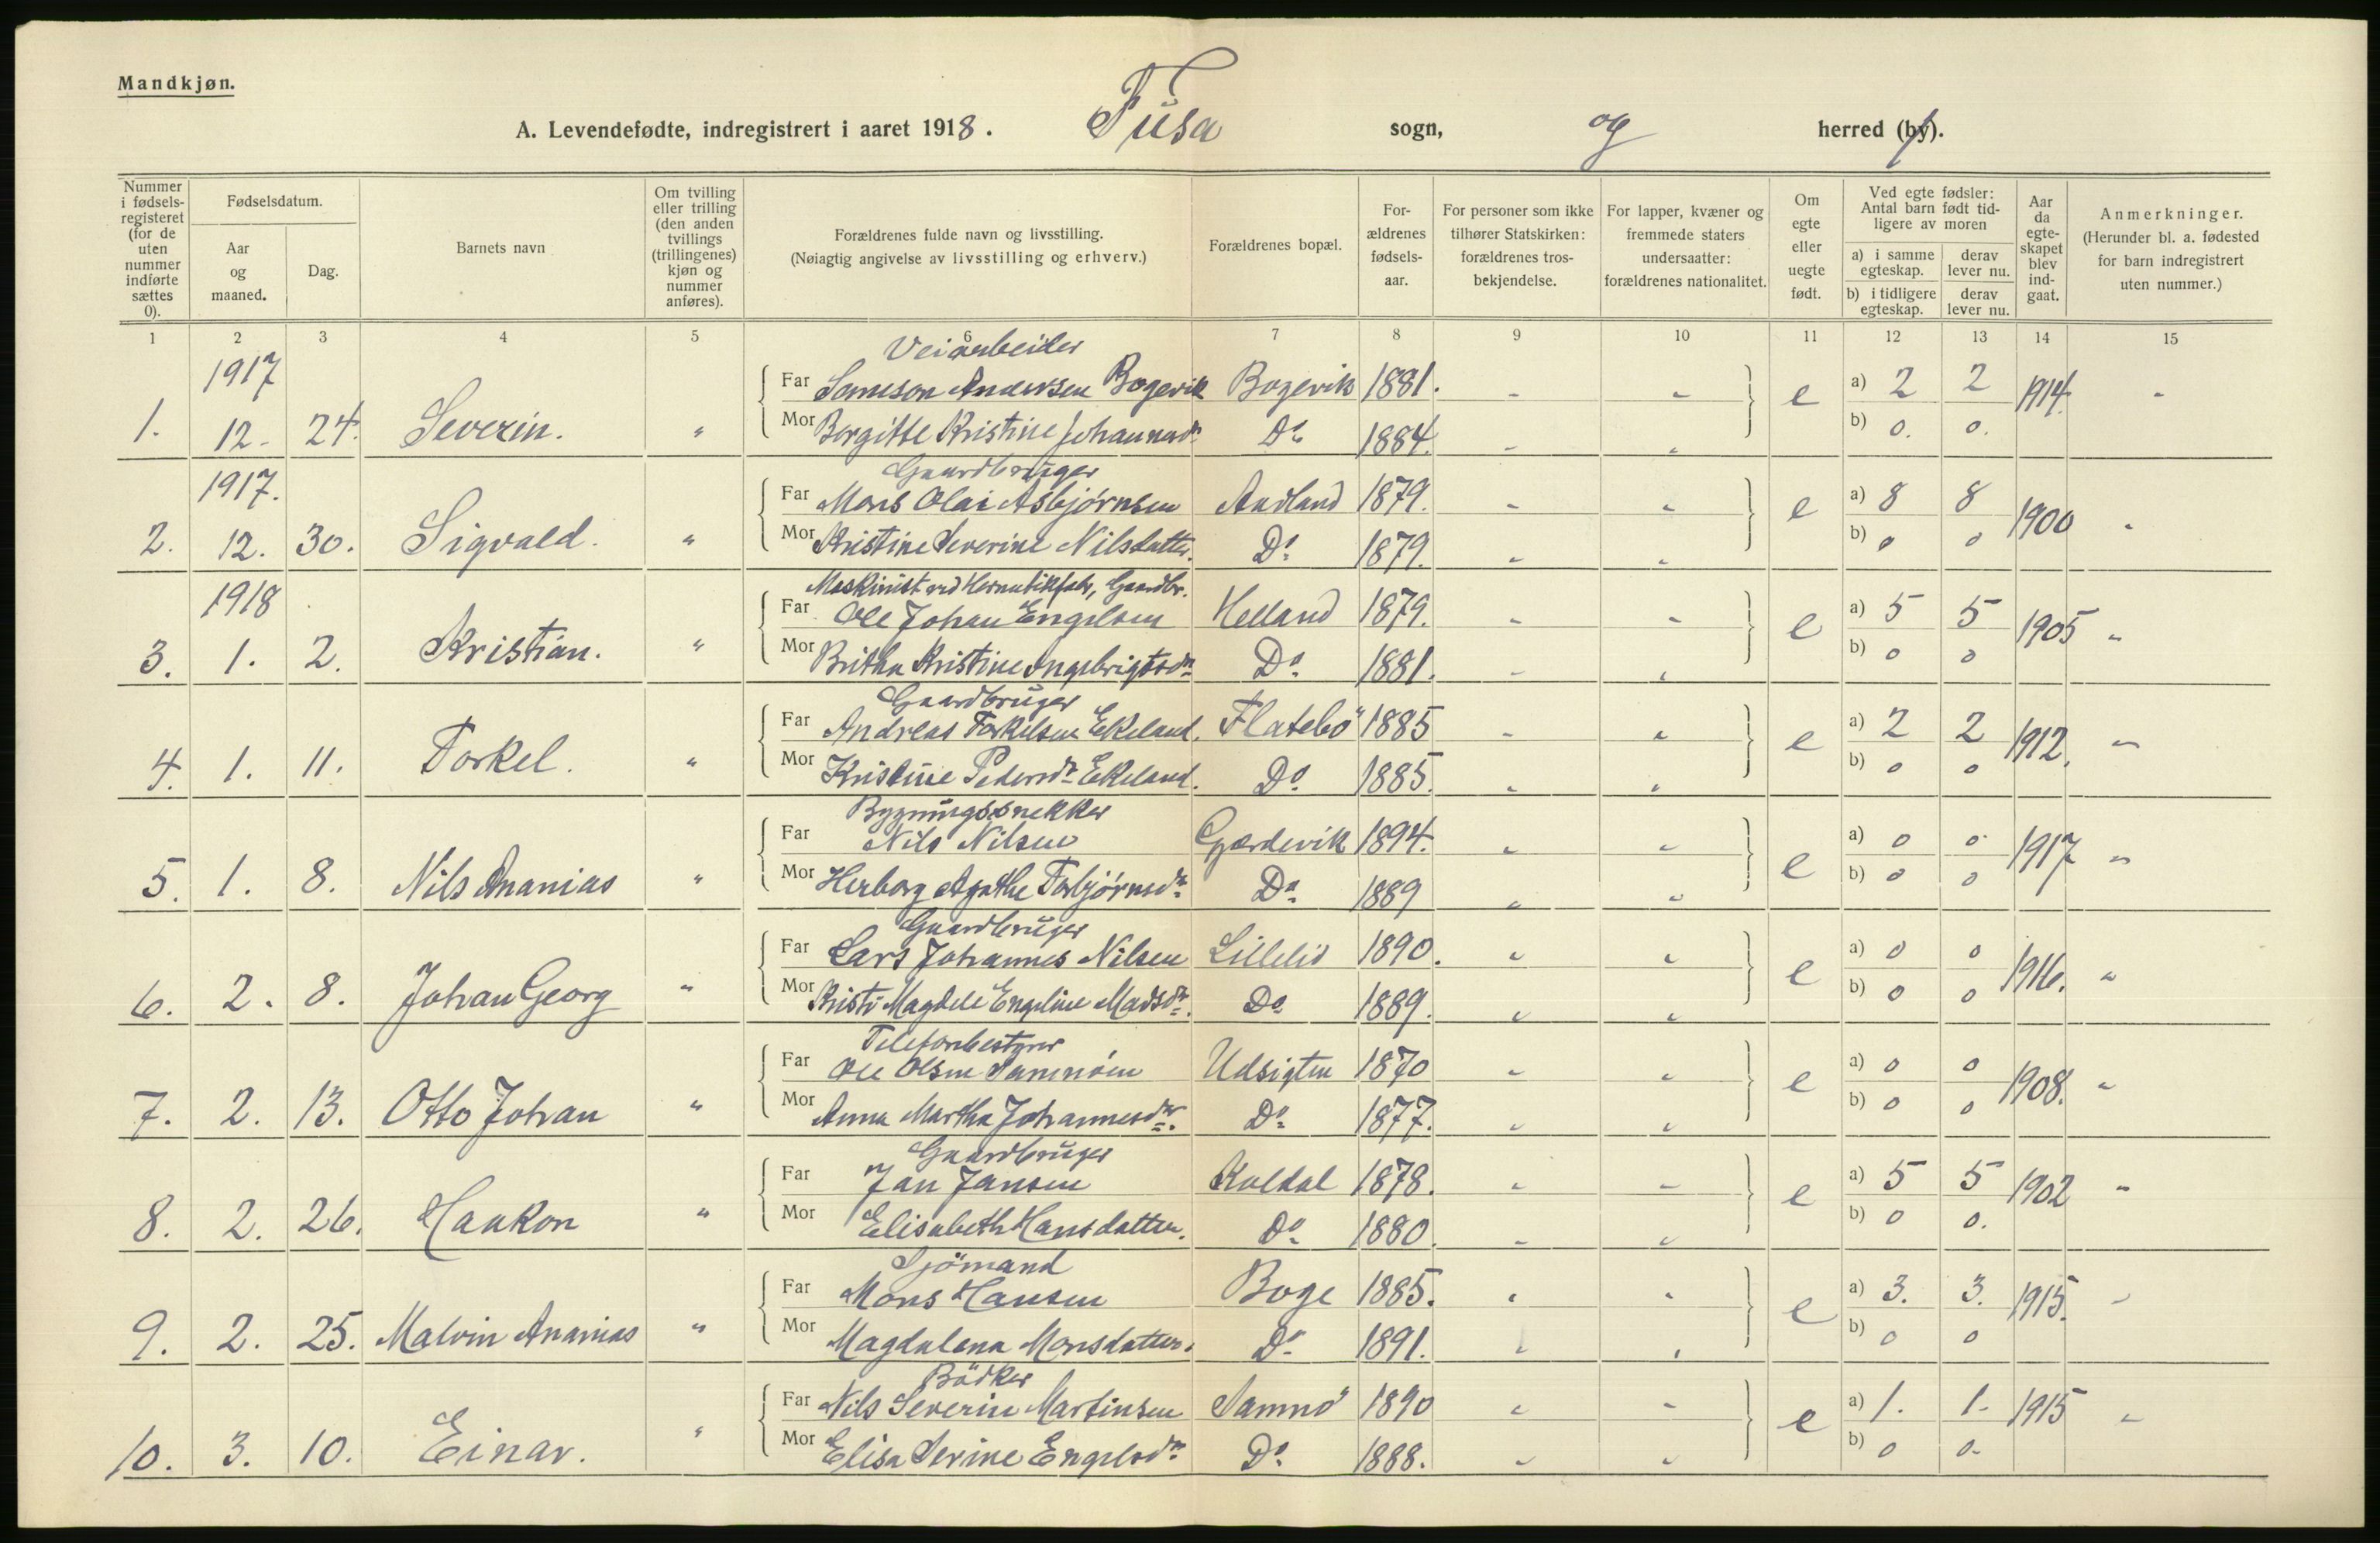 Mandkjøn.
A. Levendefødte, indregistrert i aaret 1918. Fusa sogn, og herred (by).
Nummer i fødsels-registeret (for de uten nummer indførte sættes 0).
Fødselsdatum.
Aar og maaned.
Dag.
Barnets navn
Om tvilling eller trilling (den anden tvillings (trillingenes) kjøn og nummer anføres).
Forældrenes fulde navn og livsstilling.
(Nøiagtig angivelse av livsstilling og erhverv.)
Forældrenes bopæl.
For-ældrenes fødsels-aar.
For personer som ikke tilhører Statskirken: forældrenes tros-bekjendelse.
For lapper, kvæner og fremmede staters undersaatter: forældrenes nationalitet.
Om egte eller uegte født.
Ved egte fødsler: Antal barn født tid-ligere av moren
a) i samme egteskap.
derav lever nu.
b) i tidligere egteskap.
derav lever nu.
Aar da egte-skapet blev ind-gaat.
Anmerkninger.
(Herunder bl. a. fødested for barn indregistrert uten nummer.)
1 2 3 4 5 6 7 8 9 10 11 12 13 14 15
1917 Veiarbeider
Far Samson Andersen Bogevik Bogevik 1881. - " a) 2 2
1. 12. 24. Severin. " e 1914. -
Mor Bergitte Kristine Johannesdr. Do 1884. - " b) 0. 0.
1917. Gaardbruger
Far Mons Olai Asbjørnsen Andland 1879. - " a) 8 8
2. 12. 30. Sigvald. " e 1900 "
Mor Kristine Severine Nilsdatter. Do 1879. " " b) 0 0
1918 Maskinist ved Hermetikfabr, Gaardbr.
Far Ole Johan Engelsen Helland 1879. " " a) 5 5
3. 1. 2. Kristian. " e 1905 "
Mor Britha Kristine Ingebrigtsdr. Do 1881. - " b) 0 0
Gaardbruger
Far Andreas Torkelsen Ekeland. Flatebö 1885 - " a) 2 2
4. 1. 11. Torkel. " e 1912. "
Mor Kristine Pedersdr. Ekeland. Do 1885. " " b) 0 0
Bygningssnekker
Far Nils Nilsen Gjærdevik 1894. " " a) 0 0
5. 1. 8. Nils Ananias " e 1917 "
Mor Herborg Agathe Torbjørnsdr. Do 1889 " " b) 0 0
Gaardbruger
Far Lars Johannes Nilsen Lillelid 1890. " " a) 0 0
6. 2. 8. Johan Georg " e 1916. "
Mor Kristi Magdele Engeline Madsdr. Do 1889. " " b) 0 0
Telefonbestyrer
Far Ole Olsen Samnöen Udsigten 1870 " " a) 0 0
7. 2. 13. Otto Johan " e 1908. "
Mor Anna Martha Johannesdtr. Do 1877. " " b) 0 0
Gaardbruger
Far Jan Jansen Koldal 1878. " - a) 5 5
8. 2. 26. Haakon " e 1902 "
Mor Elisabeth Hansdatter. Do 1880. - " b) 0 0.
Sjömand
Far Mons Hansen Boge 1885. " " a) 3. 3.
9. 2. 25. Malvin Ananias " e 1915. "
Mor Magdalena Monsdatter. Do 1891. " " b) 0 0
Bödker
Far Nils Severin Martinsen Samnö 1890 " - a) 1. 1.
10. 3. 10. Einar. " e 1915 "
Mor Elisa Serine Engelsdr. Do 1888. " " b) 0 0